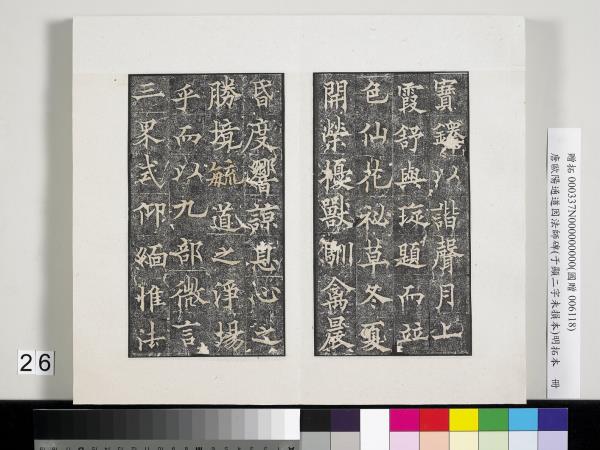 寶鐸以諧聲月上
霞舒與琁題而竝
色仙花祕草冬夏
開榮擾獸馴禽晨
昏度響諒息心之
勝境毓道之淨場
乎而以九部微言
三果式仰緬惟法
贈拓 000337N000000000(國贈 006118)
唐歐陽通道因法師碑(于顯二字未損本)明拓本 冊
26